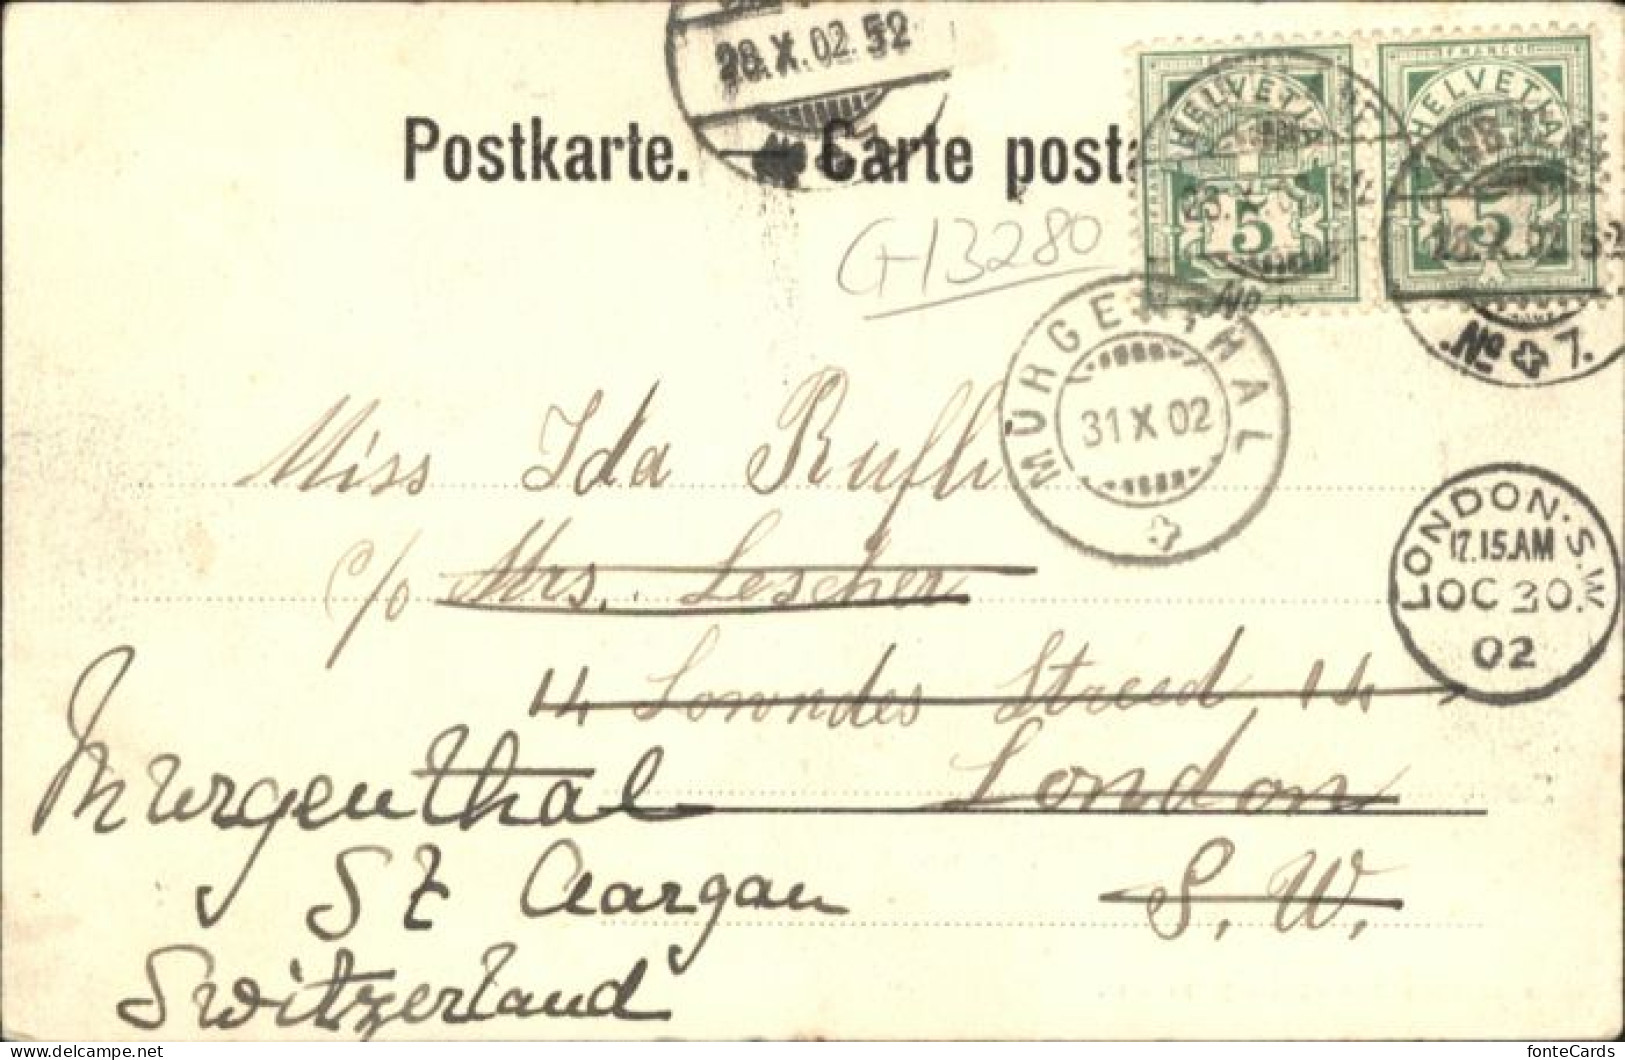 28.X.02.52
Postkarte. Carte posta
FRANCO
HELVETIA
HELVETIA
5
5
28.X.02.52
No 7.
G13280
MÜRGENTHAL
31 X 02
LONDON.S.W.
7.15.AM
OC 30
02
Miss Ida Rufli
c/o Mrs. Lescher
14 Lowndes Street 14
London
S.W.
Murgenthal
St Aargau
Switzerland
fonteCards
delcampe.net